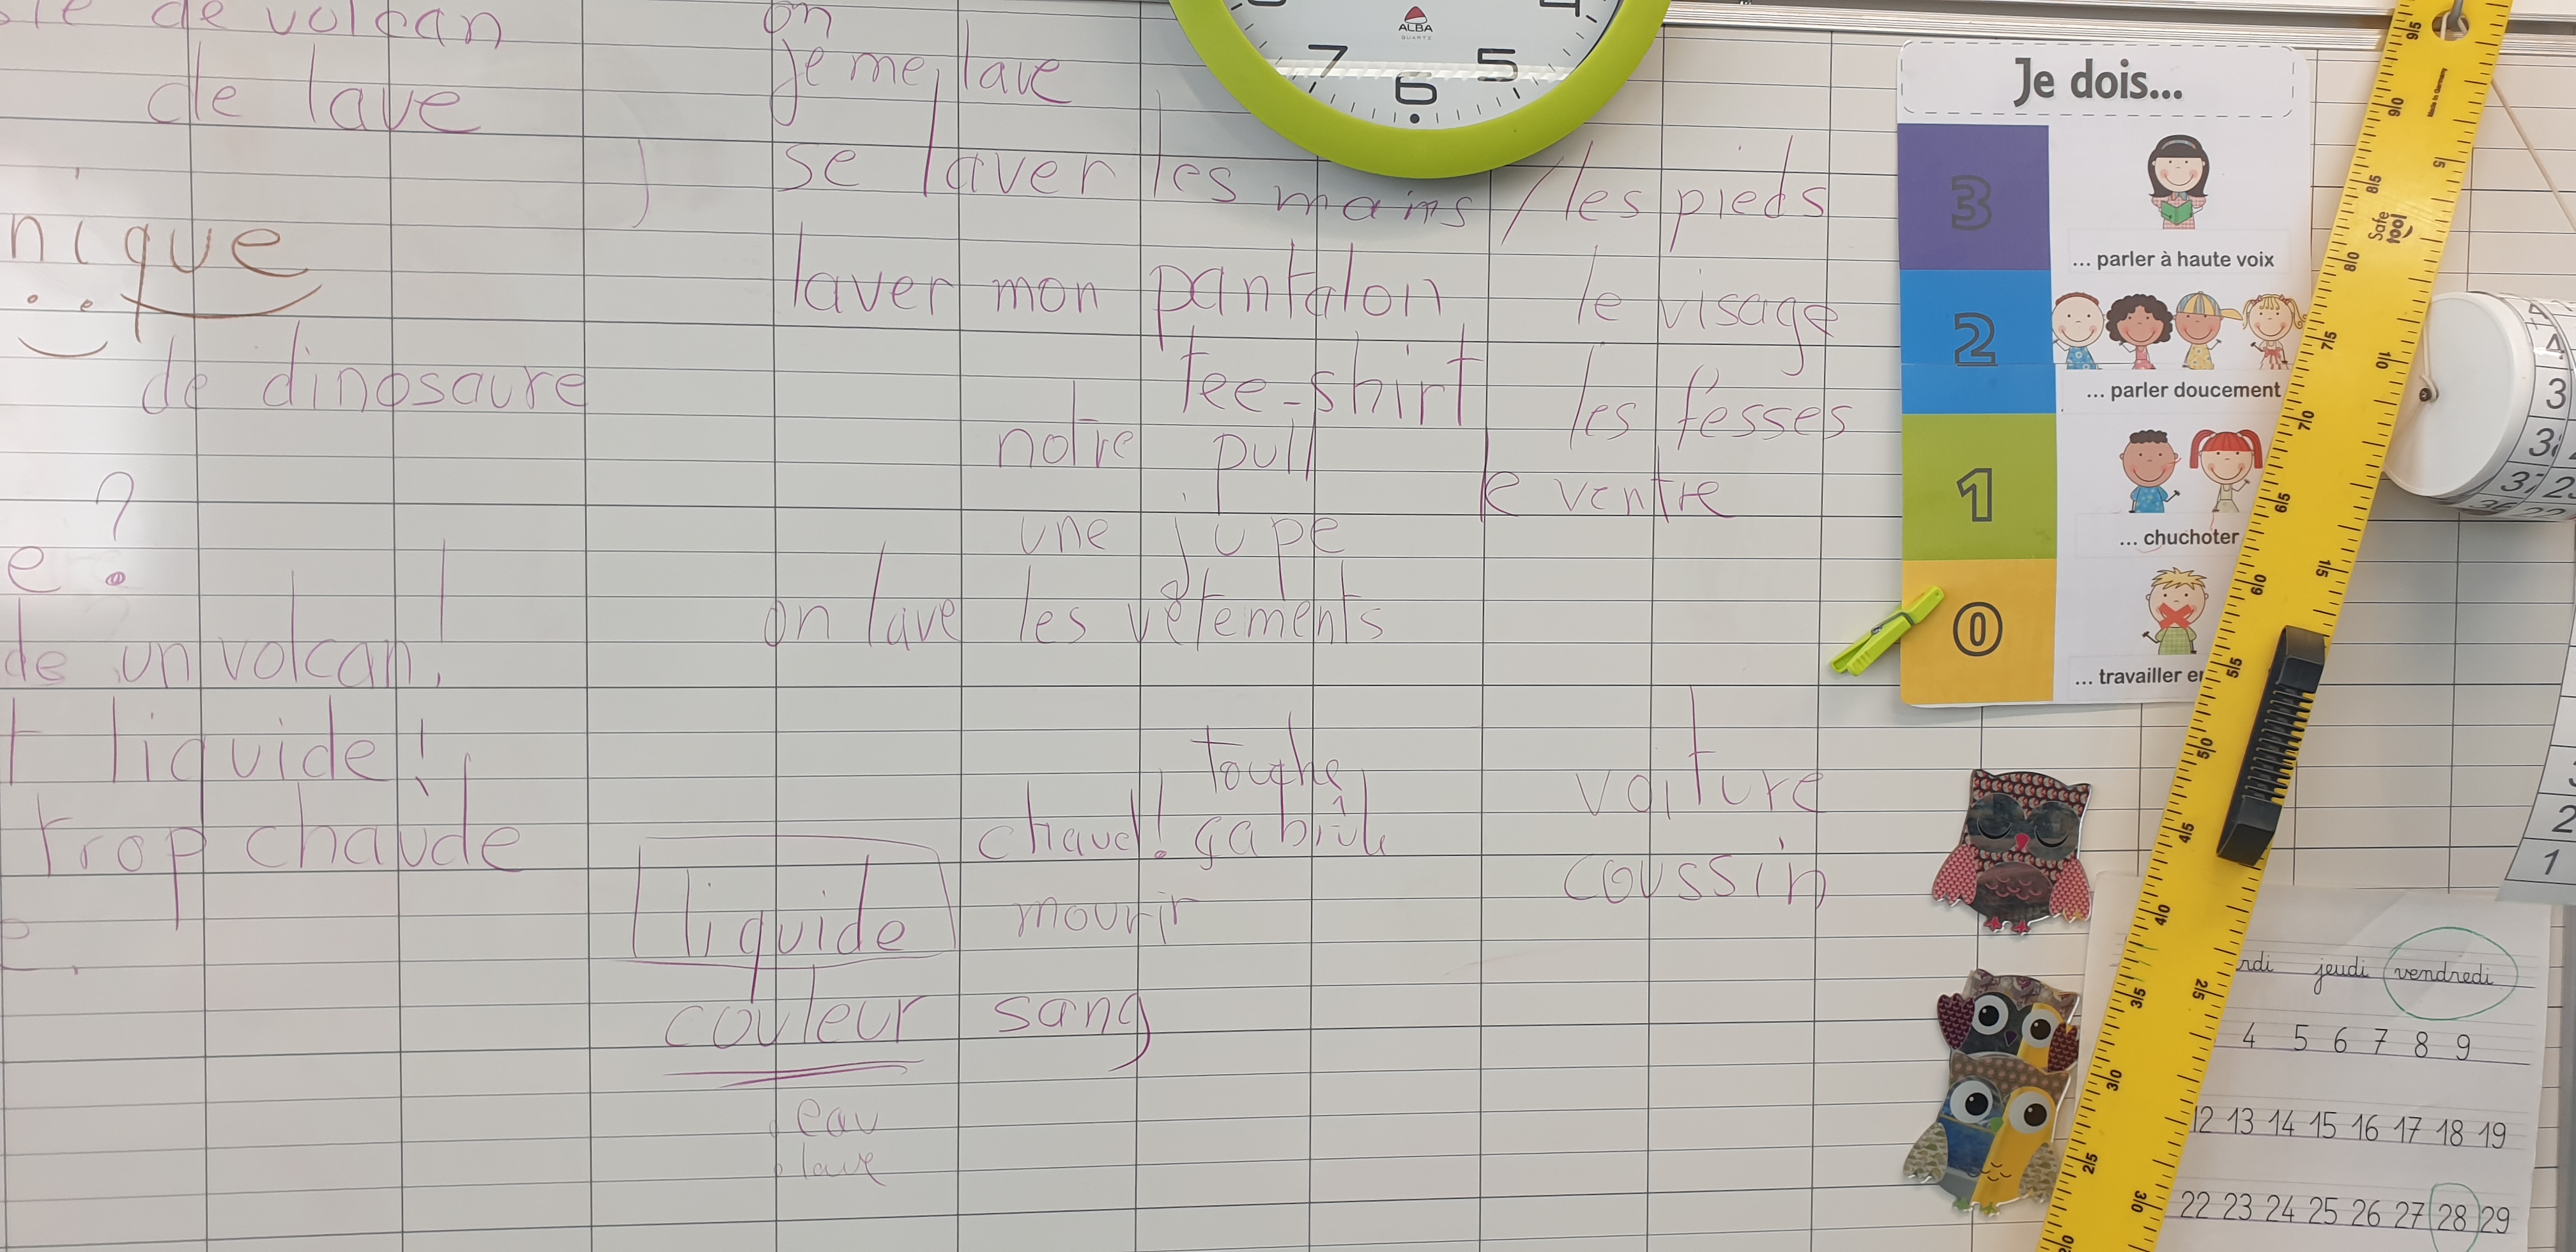 de volcan
de lave
nique
de dinosaure
e ?
de un volcan,
t liquide !
trop chaude
e.
on
je me lave
se laver les mains / les pieds
laver mon pantalon
le visage
tee-shirt
les fesses
notre pull
le ventre
une jupe
on lave les vêtements
touche
chaud! ça brûle
voiture
coussin
liquide
mourir
couleur
sang
eau
lave
ALBA
QUARTZ
7 6 5
Je dois...
3
... parler à haute voix
2
... parler doucement
1
... chuchoter
0
... travailler
Safe tool
Made in Germany
95
90
85
80
75
70
65
60
55
50
45
40
35
30
25
5
10
15
25
30
4
3
37
2
1
rdi jeudi vendredi
4 5 6 7 8 9
12 13 14 15 16 17 18 19
22 23 24 25 26 27 28 29